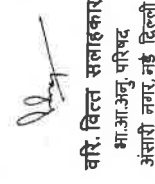 वरि. वित्त सलाहकार
भा.आ.अनु. परिषद
अंसारी नगर, नई दिल्ली